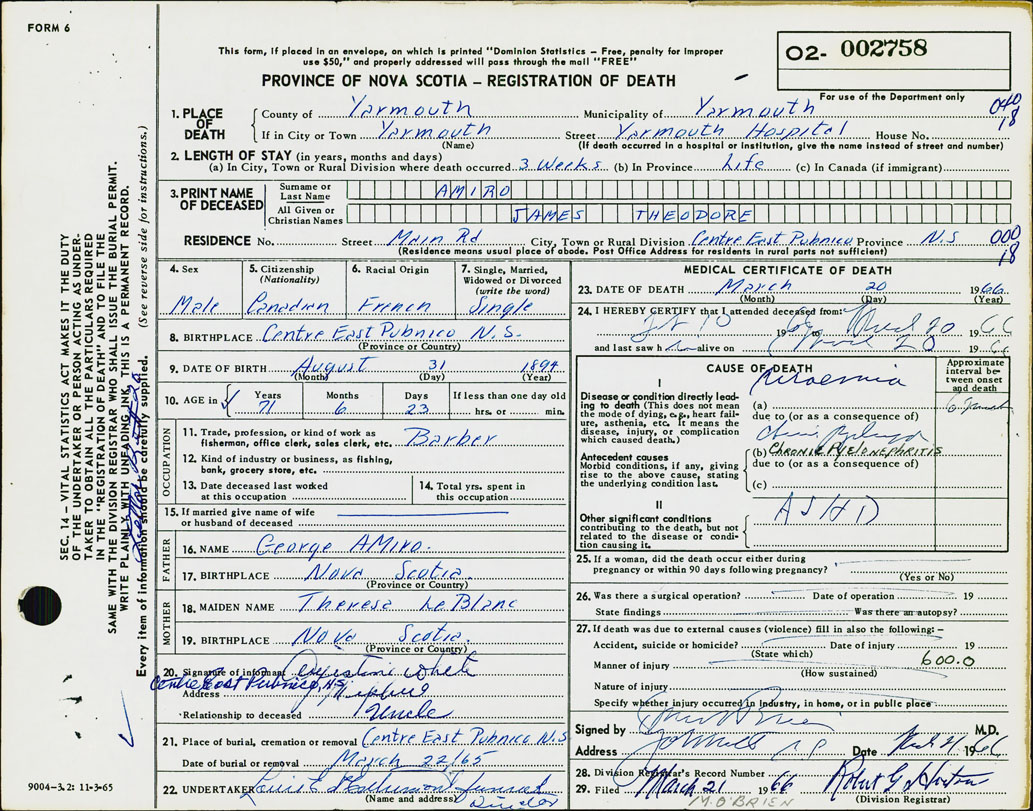 FORM 6
This form, if placed in an envelope, on which is printed "Dominion Statistics – Free, penalty for improper
use $50," and properly addressed will pass through the mail "FREE"
PROVINCE OF NOVA SCOTIA – REGISTRATION OF DEATH
02- 002758
For use of the Department only
1. PLACE OF DEATH County of Yarmouth Municipality of Yarmouth 040
If in City or Town Yarmouth Street Yarmouth Hospital House No. 18
(Name) (If death occurred in a hospital or institution, give the name instead of street and number)
2. LENGTH OF STAY (in years, months and days)
(a) In City, Town or Rural Division where death occurred 3 Weeks (b) In Province Life (c) In Canada (if immigrant)
3. PRINT NAME OF DECEASED Surname or Last Name AMIRO
All Given or Christian Names JAMES THEODORE
RESIDENCE No. Street Main Rd City, Town or Rural Division Centre East Pubnico Province N.S 000
(Residence means usual place of abode. Post Office Address for residents in rural parts not sufficient) 18
4. Sex Male
5. Citizenship (Nationality) Canadian
6. Racial Origin French
7. Single, Married, Widowed or Divorced (write the word) Single
8. BIRTHPLACE Centre East Pubnico N.S.
(Province or Country)
9. DATE OF BIRTH August 31 1894
(Month) (Day) (Year)
10. AGE in Years 71 Months 6 Days 23 If less than one day old hrs. or min.
OCCUPATION
11. Trade, profession, or kind of work as fisherman, office clerk, sales clerk, etc. Barber
12. Kind of industry or business, as fishing, bank, grocery store, etc.
13. Date deceased last worked at this occupation
14. Total yrs. spent in this occupation
15. If married give name of wife or husband of deceased
FATHER
16. NAME George AMiro.
17. BIRTHPLACE Nova Scotia
(Province or Country)
MOTHER
18. MAIDEN NAME Theresa LeBlanc
19. BIRTHPLACE Nova Scotia
(Province or Country)
20. Signature of informant
Centre East Pubnico, N.S.
Address
Relationship to deceased Uncle
21. Place of burial, cremation or removal Centre East Pubnico N.S
Date of burial or removal March 22/65
22. UNDERTAKER Director
(Name and address)
MEDICAL CERTIFICATE OF DEATH
23. DATE OF DEATH March 20 1966
(Month) (Day) (Year)
24. I HEREBY CERTIFY that I attended deceased from:
10 19 to 20 19 66
and last saw h alive on 20 19 66
CAUSE OF DEATH
Approximate interval between onset and death
I
Disease or condition directly leading to death (This does not mean the mode of dying, e.g., heart failure, asthenia, etc. It means the disease, injury, or complication which caused death.)
(a) Uraemia
due to (or as a consequence of)
Antecedent causes
Morbid conditions, if any, giving rise to the above cause, stating the underlying condition last.
(b) CHRONIC PYELONEPHRITIS
due to (or as a consequence of)
(c)
II
Other significant conditions contributing to the death, but not related to the disease or condition causing it.
ASHD
25. If a woman, did the death occur either during
pregnancy or within 90 days following pregnancy?
(Yes or No)
26. Was there a surgical operation? Date of operation 19
State findings Was there an autopsy?
27. If death was due to external causes (violence) fill in also the following:–
Accident, suicide or homicide? Date of injury 19
(State which)
Manner of injury 600.0
(How sustained)
Nature of injury
Specify whether injury occurred in industry, in home, or in public place
Signed by M.D.
Address Date 21 1966
28. Division Registrar's Record Number
29. Filed March 21 1966
M. O'BRIEN (Division Registrar)
SEC. 14 – VITAL STATISTICS ACT MAKES IT THE DUTY
OF THE UNDERTAKER OR PERSON ACTING AS UNDER-
TAKER TO OBTAIN ALL THE PARTICULARS REQUIRED
IN THE "REGISTRATION OF DEATH" AND TO FILE THE
SAME WITH THE DIVISION REGISTRAR WHO SHALL ISSUE THE BURIAL PERMIT.
WRITE PLAINLY WITH UNFADING INK, THIS IS A PERMANENT RECORD.
Every item of information should be carefully supplied. (See reverse side for instructions.)
9004-3.2: 11-3-65